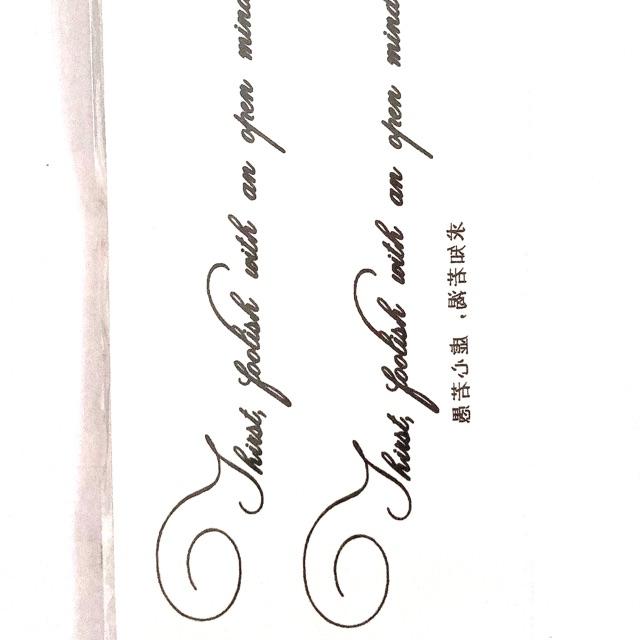 Thirst, foolish with an open mind
Thirst, foolish with an open mind
求知若渴，虛心若愚